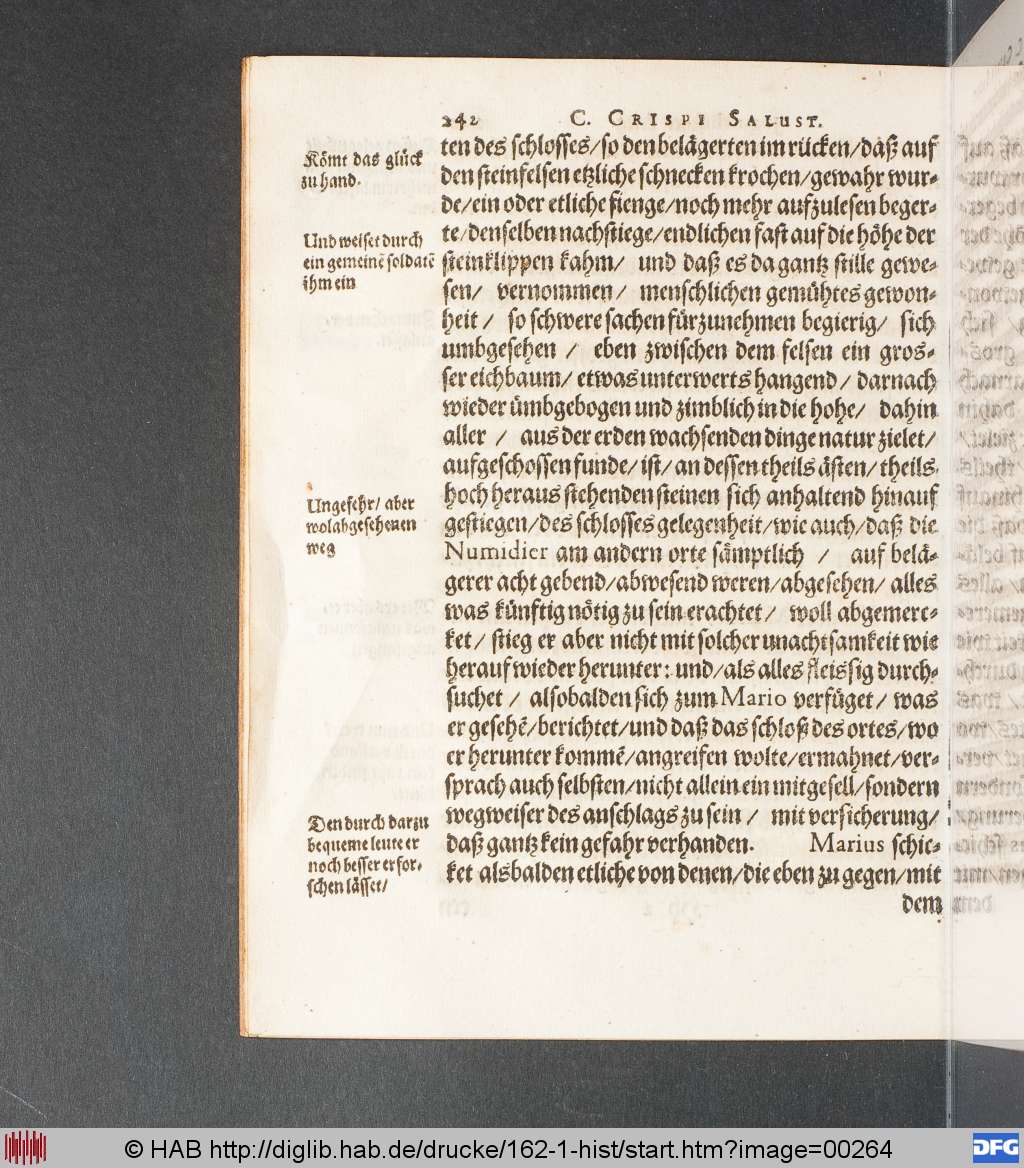 242 C. CRISPI SALUST.
ten des schlosses/so den belägerten im rücken/daß auf
den steinfelsen etzliche schnecken krochen/gewahr wur-
de/ein oder etliche fienge/noch mehr aufzulesen beger-
te/denselben nachstiege/endlichen fast auf die höhe der
steinklippen kahm/ und daß es da gantz stille gewe-
sen/ vernommen/ menschlichen gemühtes gewon-
heit/ so schwere sachen fürzunehmen begierig/ sich
umbgesehen / eben zwischen dem felsen ein gros-
ser eichbaum/ etwas unterwerts hangend/ darnach
wieder ümbgebogen und zimblich in die hohe/ dahin
aller / aus der erden wachsenden dinge natur zielet/
aufgeschossen funde/ ist/ an dessen theils ästen/ theils
hoch heraus stehenden steinen sich anhaltend hinauf
gestiegen/des schlosses gelegenheit/wie auch/daß die
Numidier am andern orte sämptlich / auf belä-
gerer acht gebend/abwesend weren/abgesehen/ alles
was künftig nötig zu sein erachtet/ woll abgemerc-
ket/ stieg er aber nicht mit solcher unachtsamkeit wie
herauf wieder herunter: und/als alles fleissig durch-
suchet / alsobalden sich zum Mario verfüget/ was
er gesehē/berichtet/und daß das schloß des ortes/wo
er herunter kommē/angreifen wolte/ermahnet/ver-
sprach auch selbsten/nicht allein ein mitgesell/sondern
wegweiser des anschlags zu sein / mit versicherung/
daß gantz kein gefahr verhanden. Marius schic-
ket alsbalden etliche von denen/die eben zu gegen/mit
dem
Kömt das glück
zu hand.
Und weiset durch
ein gemeinē soldatē
ihm ein
Ungefehr/ aber
wolabgesehenen
weg
Den durch darzu
bequeme leute er
noch besser erfor-
schen lässet/
© HAB http://diglib.hab.de/drucke/162-1-hist/start.htm?image=00264
DFG